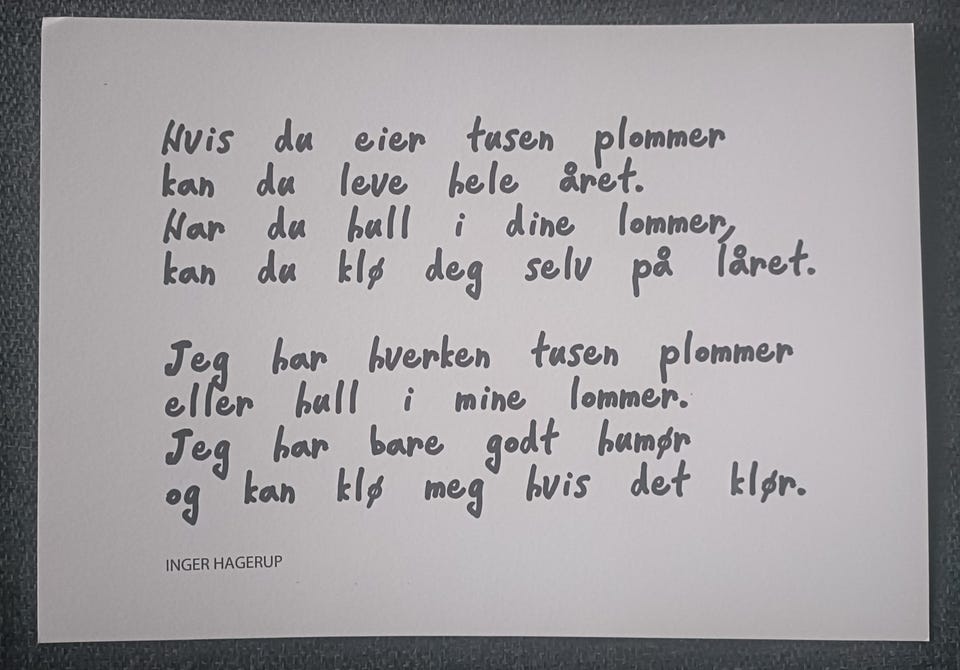 Hvis du eier tusen plommer
kan du leve hele året.
Har du hull i dine lommer,
kan du klø deg selv på låret.
Jeg har hverken tusen plommer
eller hull i mine lommer.
Jeg har bare godt humør
og kan klø meg hvis det klør.
INGER HAGERUP